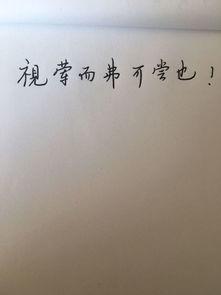 視荤而弗可尝也！